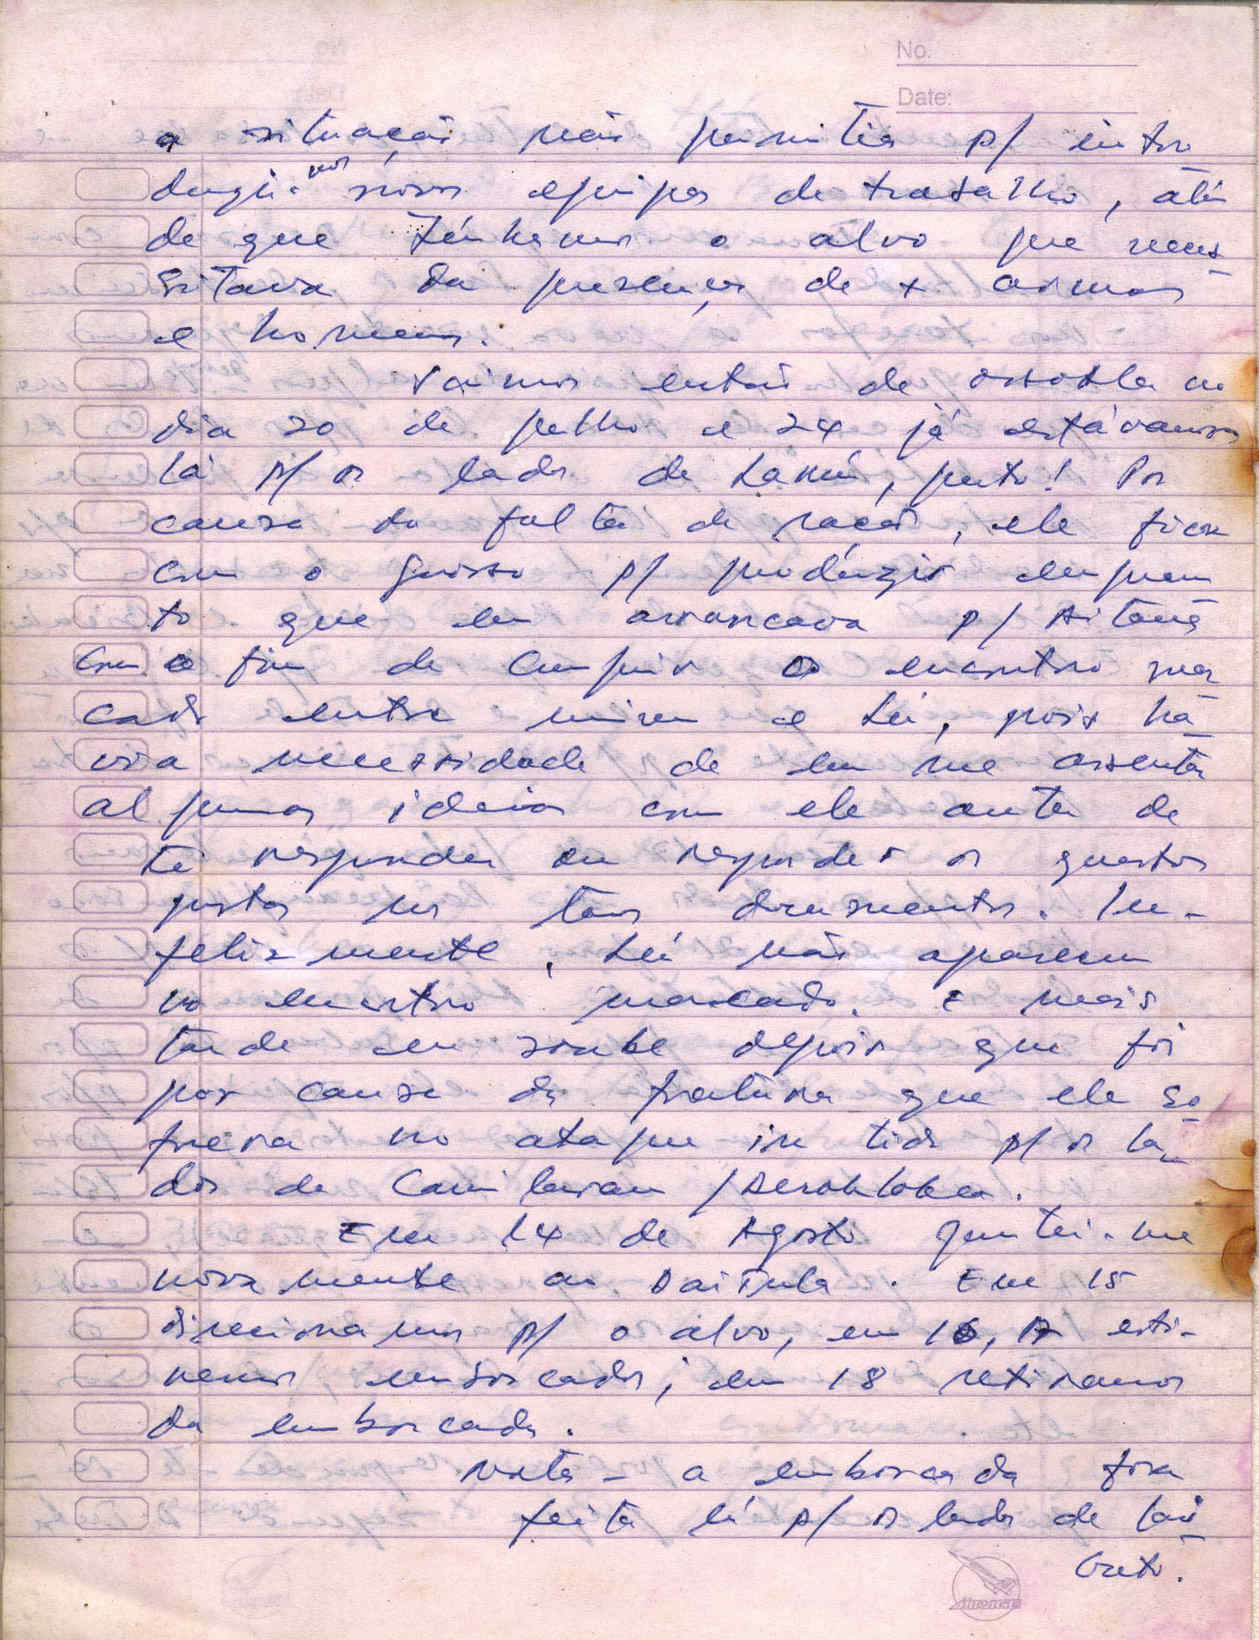 No.
Date:
a situação não permitia p/ intro
duzir-mos novos equipas de trabalho, além
de que tínhamos o alvo que neces
sitava da presença de + armas
e homens.
Saímos então de ossohla no
dia 20 de julho e 24 já estávamos
lá p/ os lados de perto! Por
causa da falta de ração, ele ficou
com o grosso p/ produzir enquan
to que eu arrancava p/ Aitana
com o fim de cumprir o encontro mar
cado entre mim e Lú, pois ha
via necessidade de eu me assentar
algumas ideias com ele antes de
te responder ou responder os questões
postas nos teus documentos. In-
felizmente, Lú não apareceu
no encontro marcado. E mais
tarde eu soube depois que foi
por causa da fratura que ele so
frera no ataque p/ os la
dos de
Em 14 de Agosto juntei-me
novamente ao Daitula. Em 15
direcionamos p/ o alvo, em 16, 17 esti-
vemos emboscados; em 18 retiramos
da emboscada.
Nota - a emboscada fora
feita lá p/ os lados de